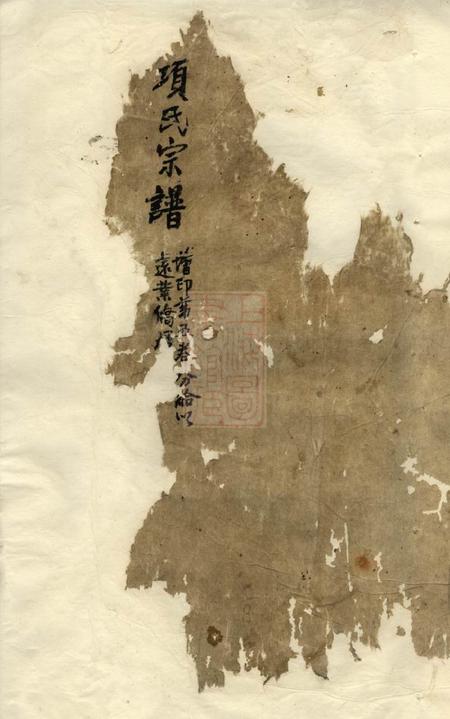 項氏宗譜
增印第五卷分給以
遠業僑